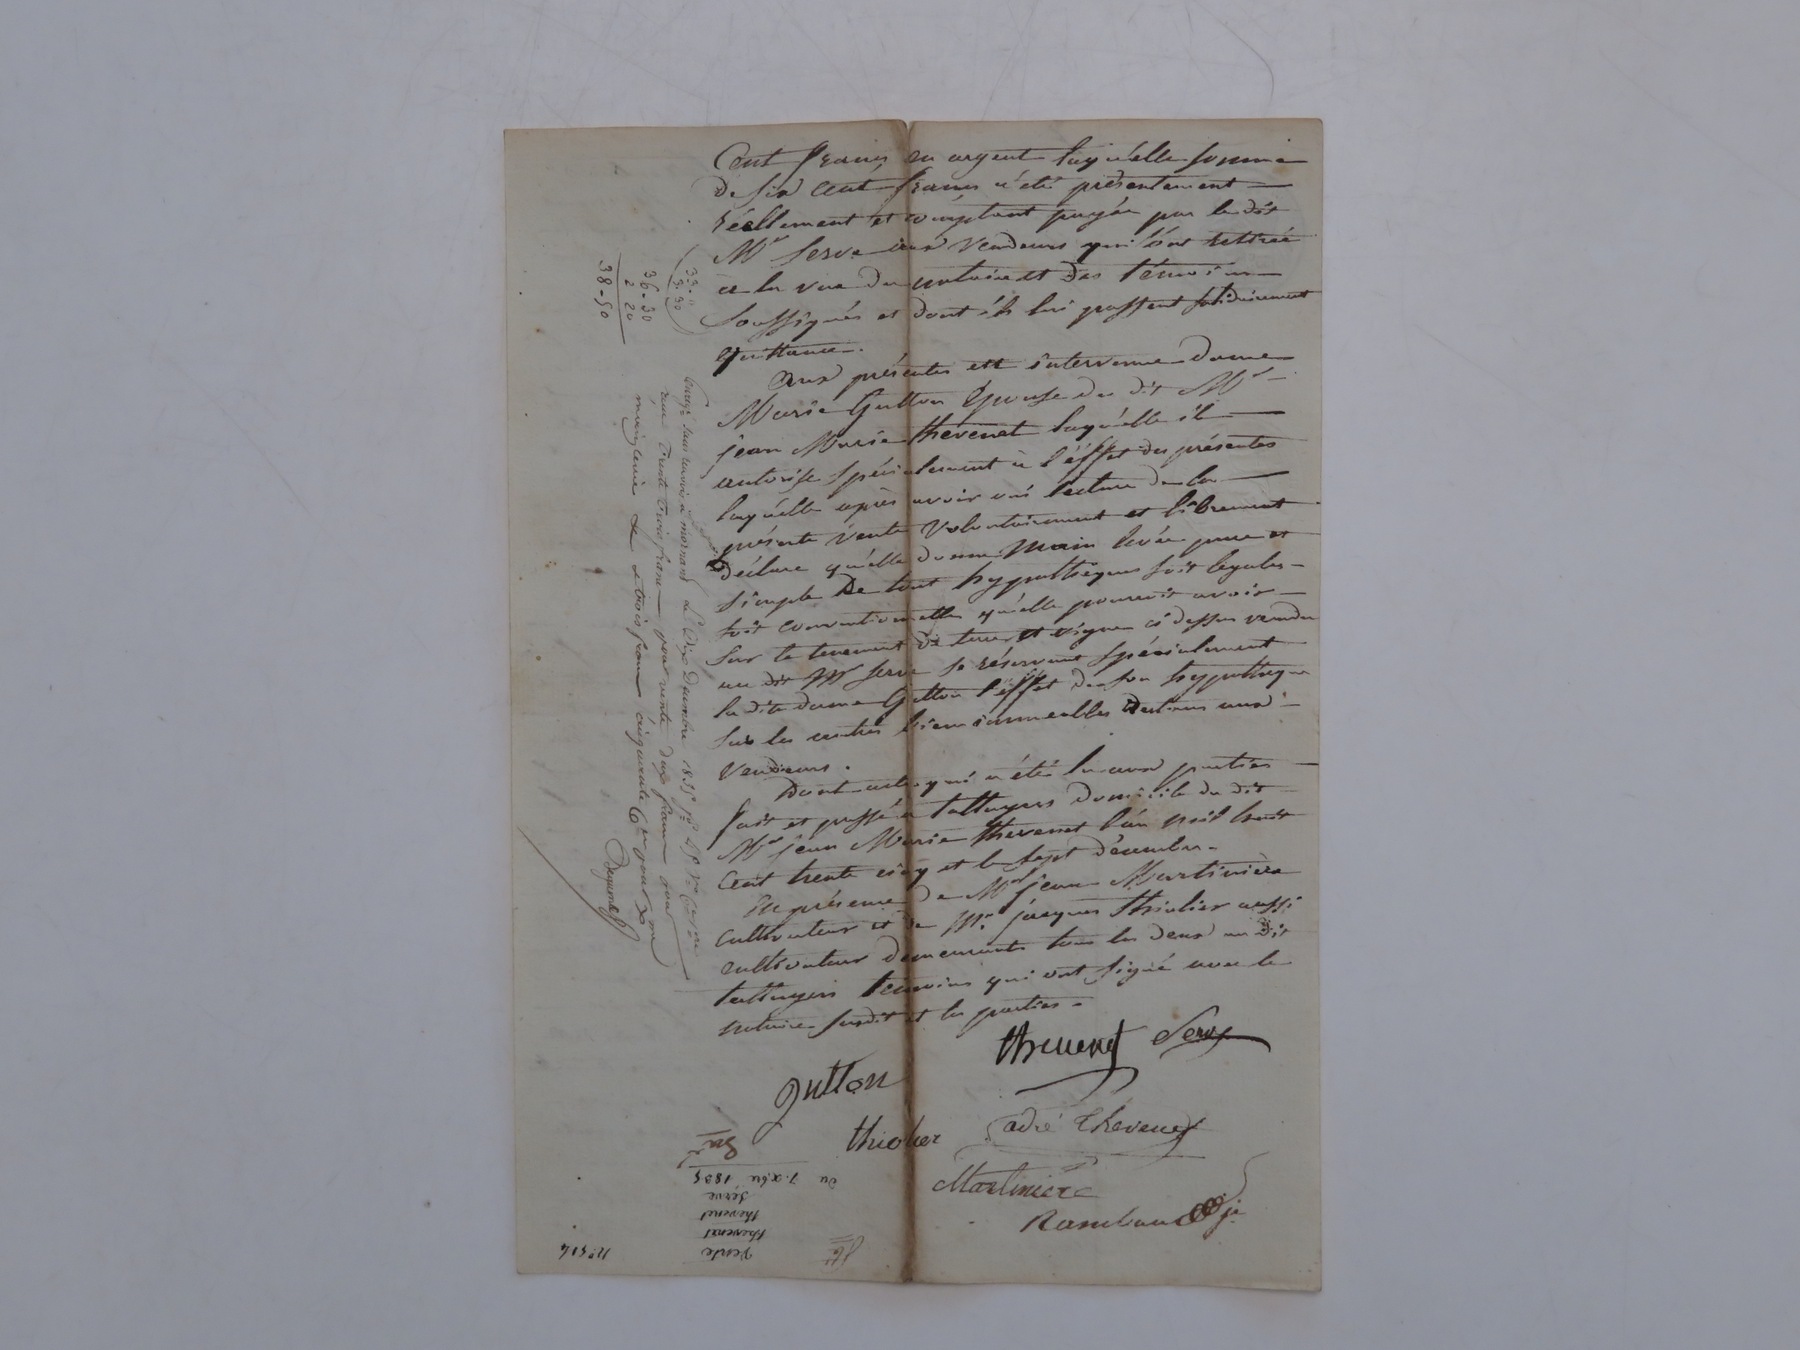 Cent francs en argent laqu'elle somme
de six cent francs a été présentement
réellement et comptant payée par le dit
Mr Serve aux vendeurs qui l'ont retirée
a la vue du notaire et des témoins
soussignés et dont ils lui passent solidairement
quittance.
Aux présentes est intervenue dame
Marie Gutton épouse du dit Mr
jean Marie thevenet laqu'elle il
autorise spécialement à l'éffet des présentes
laqu'elle après avoir oui lecture de la
présente vente volontairement et librement
déclare qu'elle donne main levée pure et
simple de tout hypothèques soit légales
soit conventionnelles qu'elle pourroit avoir
sur le tenement de terre et vigne ci dessus vendu
au dit Mr Serve se réservant spécialement
la dite dame Gutton l'éffet de son hypothèque
sur les autres biens immeubles des aux
vendeurs.
Dont acte qui a été lu aux parties
fait et passé a taluyers domicile du dit
Mr jean Marie thevenet l'an mil huit
cent trente cinq et le sept décembre.
En présence de Mr jean Martinière
cultivateur et de Mr jacques thiolier aussi
cultivateur demeurants tous les deux au dit
talluyers témoins qui ont signé avec le
notaire susdit et les parties.
thevenet Serve
Gutton
thiolier
adré thevenet
Martinière
Rambaud
33-"
3.30
36-30
2 20
38-50
Enregé sans renvoi à mornant Le dix Décembre 1835 fo
reçu trente trois francs pour vente
cinquante
No 514
Vente
thevenet
thevenet
Serve
du 7. xbre 1835